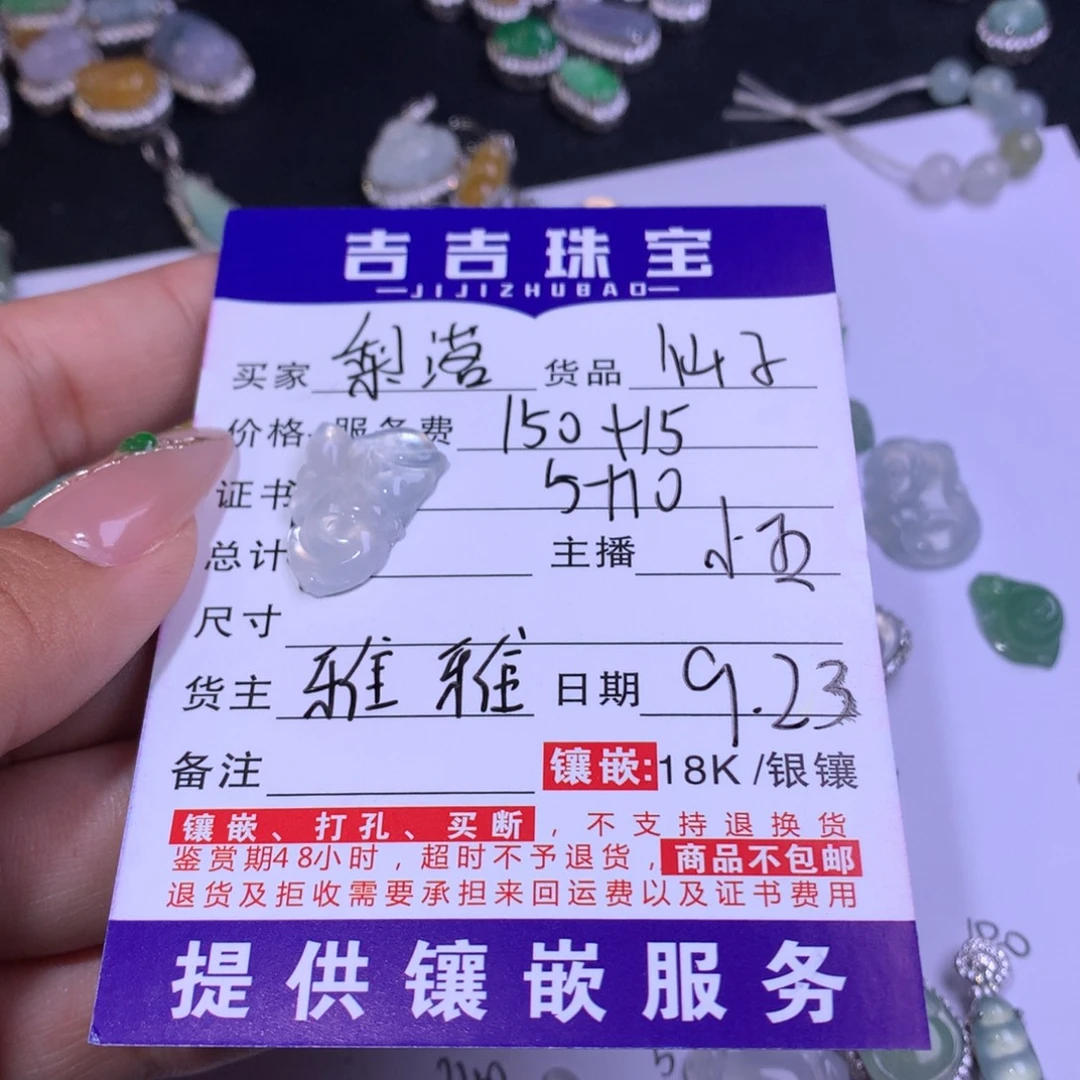 吉吉珠宝
JIJIZHUBAO
买家 梨落 货品 仙子
价格+服务费 150+15
证书 5+10
总计 主播 小五
尺寸
货主 雅雅 日期 9.23
备注 镶嵌:18K/银镶
镶嵌、打孔、买断,不支持退换货
鉴赏期48小时,超时不予退货,商品不包邮
退货及拒收需要承担来回运费以及证书费用
提供镶嵌服务